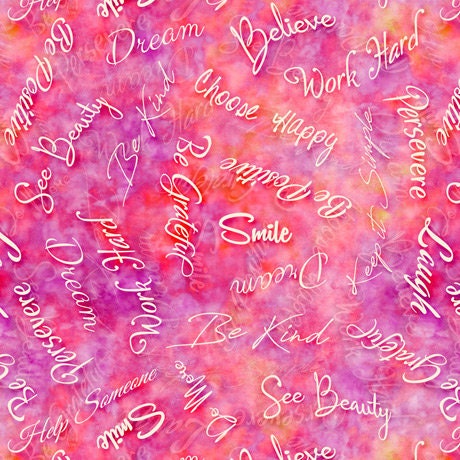 Be Positive
Dream
Believe
Work Hard
See Beauty
Be Kind
Choose Happy
Persevere
Be Grateful
Be Positive
Smile
Keep A Smile
Dream
Work Hard
Dream
Laugh
Persevere
Be Kind
Be Grateful
Help Someone
Smile
Do More
See Beauty
Believe